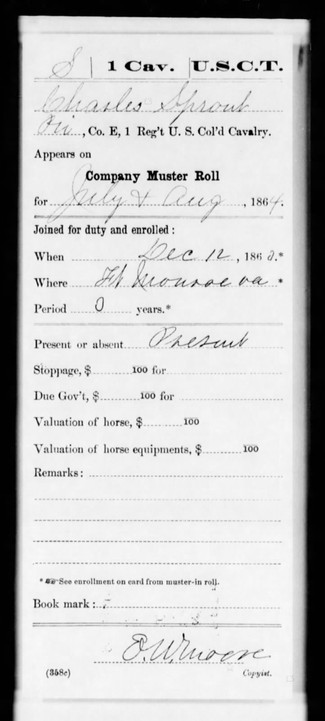 S | 1 Cav. | U.S.C.T.
Charles Sprout
Pri, Co. E, 1 Reg't U. S. Col'd Cavalry.
Appears on
Company Muster Roll
for July & Aug, 1864.
Joined for duty and enrolled:
When Dec 12, 1863.*
Where Ft Monroe va *
Period 3 years.*
Present or absent Present
Stoppage, $ 100 for
Due Gov't, $ 100 for
Valuation of horse, $ 100
Valuation of horse equipments, $ 100
Remarks:
* See enrollment on card from muster-in roll.
Book mark:
O.W. Moore
(358c) Copyist.